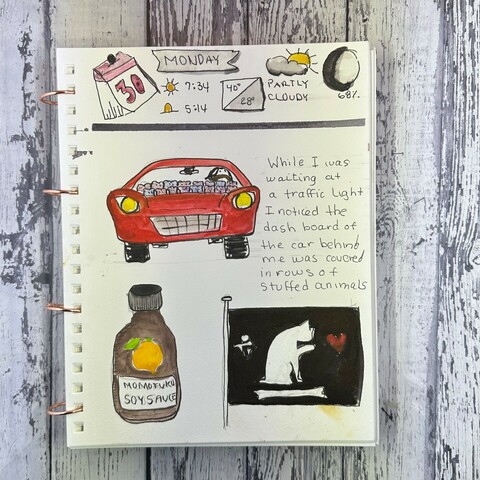 MONDAY
30
7:34
5:14
40°
28°
PARTLY
CLOUDY
68%
While I was
waiting at
a traffic light
I noticed the
dash board of
the car behind
me was covered
in rows of
stuffed animals
MOMOFUKU
SOY SAUCE